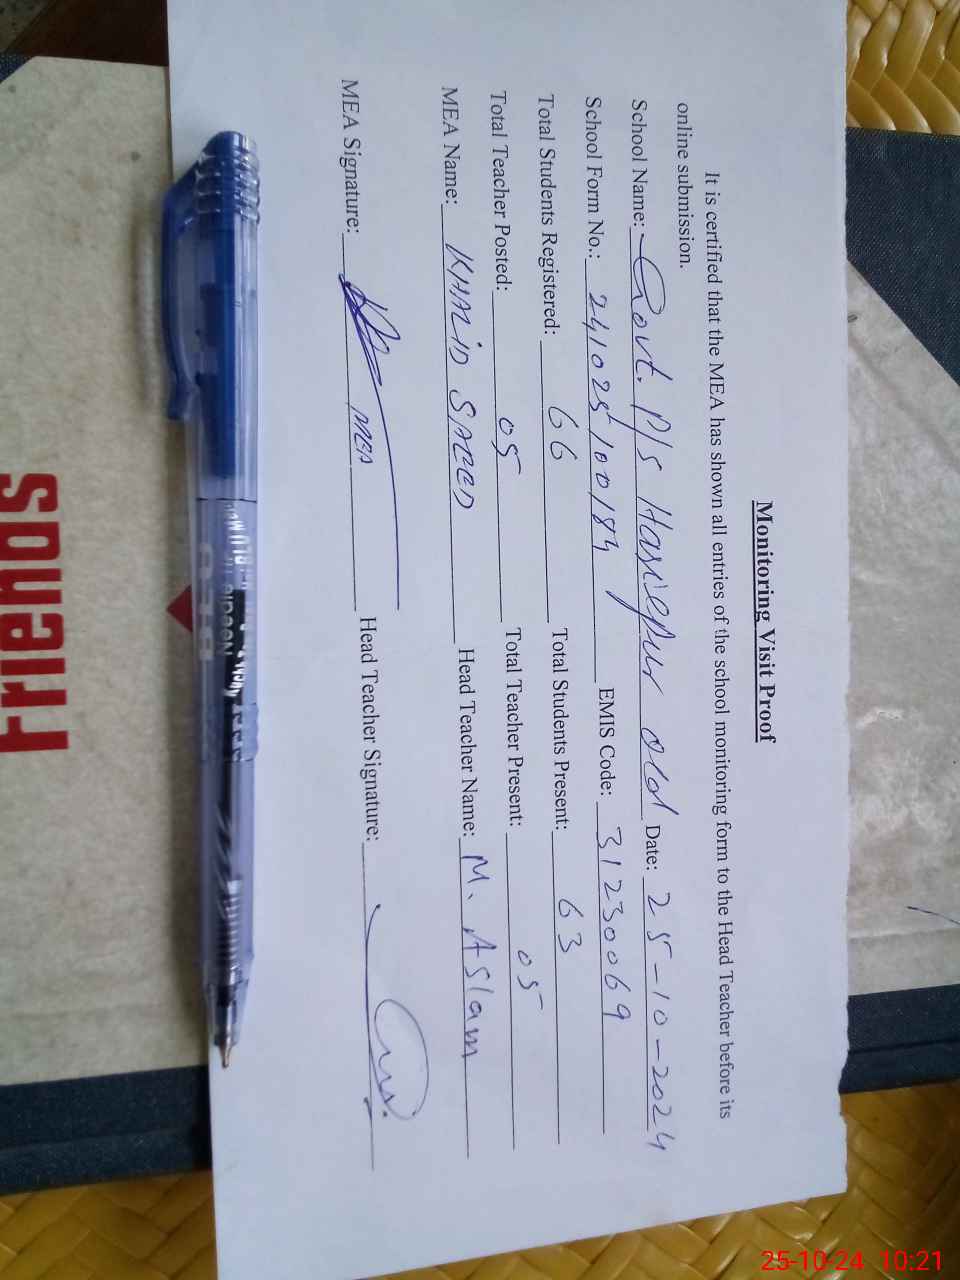 Monitoring Visit Proof
It is certified that the MEA has shown all entries of the school monitoring form to the Head Teacher before its
online submission.
School Name: Govt. P/S Hascepur old Date: 25-10-2024
School Form No.: 241025100184 EMIS Code: 31230069
Total Students Registered: 66 Total Students Present: 63
Total Teacher Posted: 05 Total Teacher Present: 05
MEA Name: KHALID SAEED Head Teacher Name: M. Aslam
MEA Signature: MEA Head Teacher Signature:
Friends
25-10-24 10:21